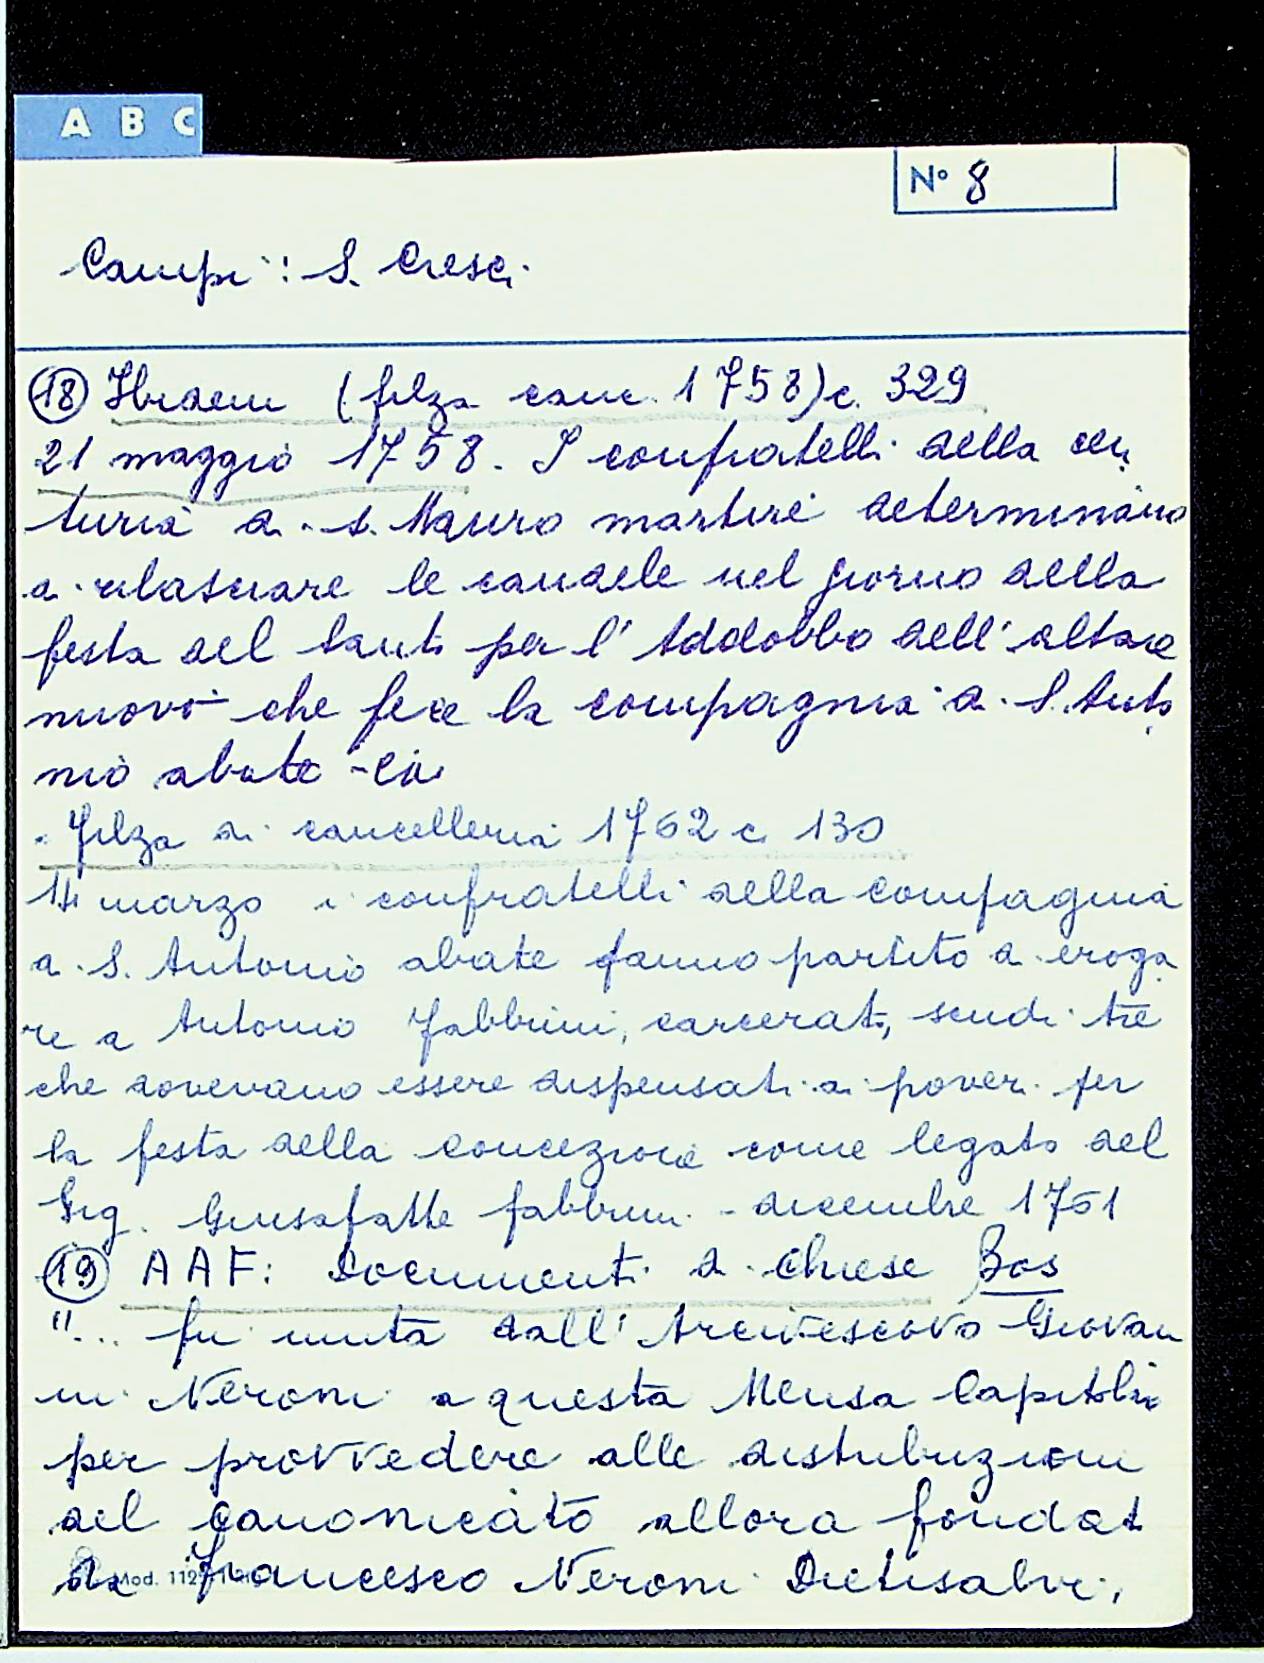 A B C
N° 8
Campi: S. Cresci
18 Ibidem (filza canc. 1758) c. 329
21 maggio 1758. I confratelli della cen
turia di S. Mauro martire determinano
di rilasciare le candele nel giorno della
festa del Santo per l'Addobbo dell'altare
nuovo che fece la compagnia di S. Anto
nio abate -
. Filza di cancelleria 1762 c. 130
14 marzo i confratelli della compagnia
di S. Antonio abate fanno partito di eroga
re a Antonio Fabbrini, carcerato, scudi tre
che dovevano essere dispensati ai poveri per
la festa della concezione come legato del
Sig. Giusafatte Fabbrini - dicembre 1751
19 AAF: Documenti di chiese Bos
"... fu unita dall'Arcivescovo Giovan
ni Neroni a questa Mensa Capitolare
per provvedere alle distribuzioni
del canonicato allora fondato
da Francesco Neroni Dietisalvi,
Mod. 112